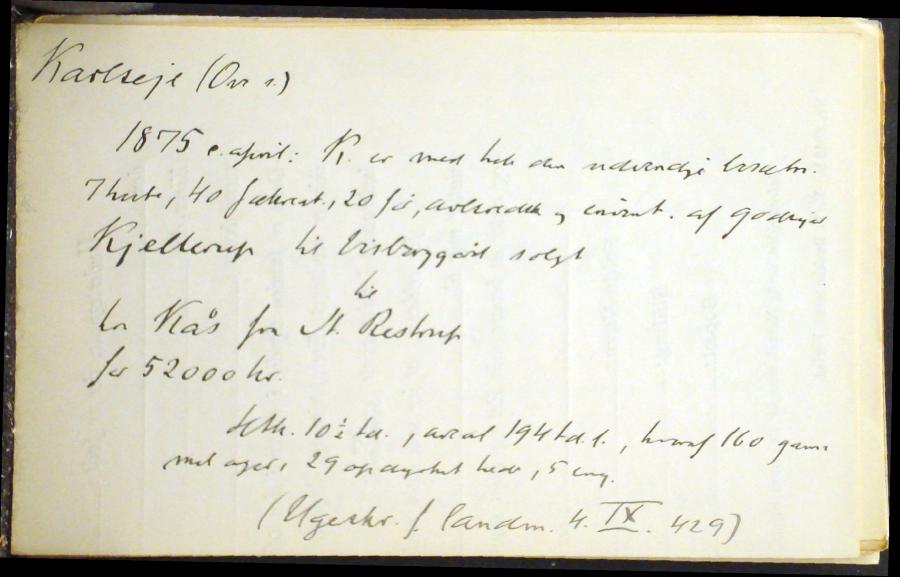 Karlseje (Ovr s.)
1875 e. april: K. er med hele den udvendige besætn.
7 heste, 40 fækreat., 20 får, avlsredsk. og invent. af godsejer
Kjellerup til Visborggård solgt
til
hr Kås fra St. Restrup
for 52000 kr.
Htk. 10½ td., areal 194 td. l., hvoraf 160 gam-
mel ager, 29 opdyrket hede, 5 eng.
(Ugeskr. f. landm. 4. IX. 429)